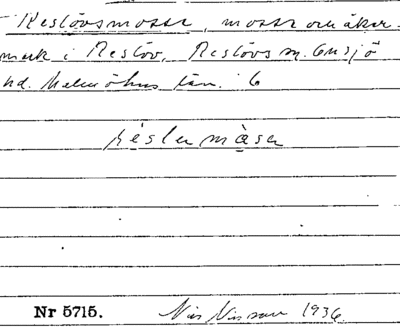 Reslövsmosse, mosse och åker-
mark i Reslöv, Reslövs sn. Onsjö
hd. Malmöhus län. 6
résle måsen
Nr 5715. Nils Nilsson 1936.